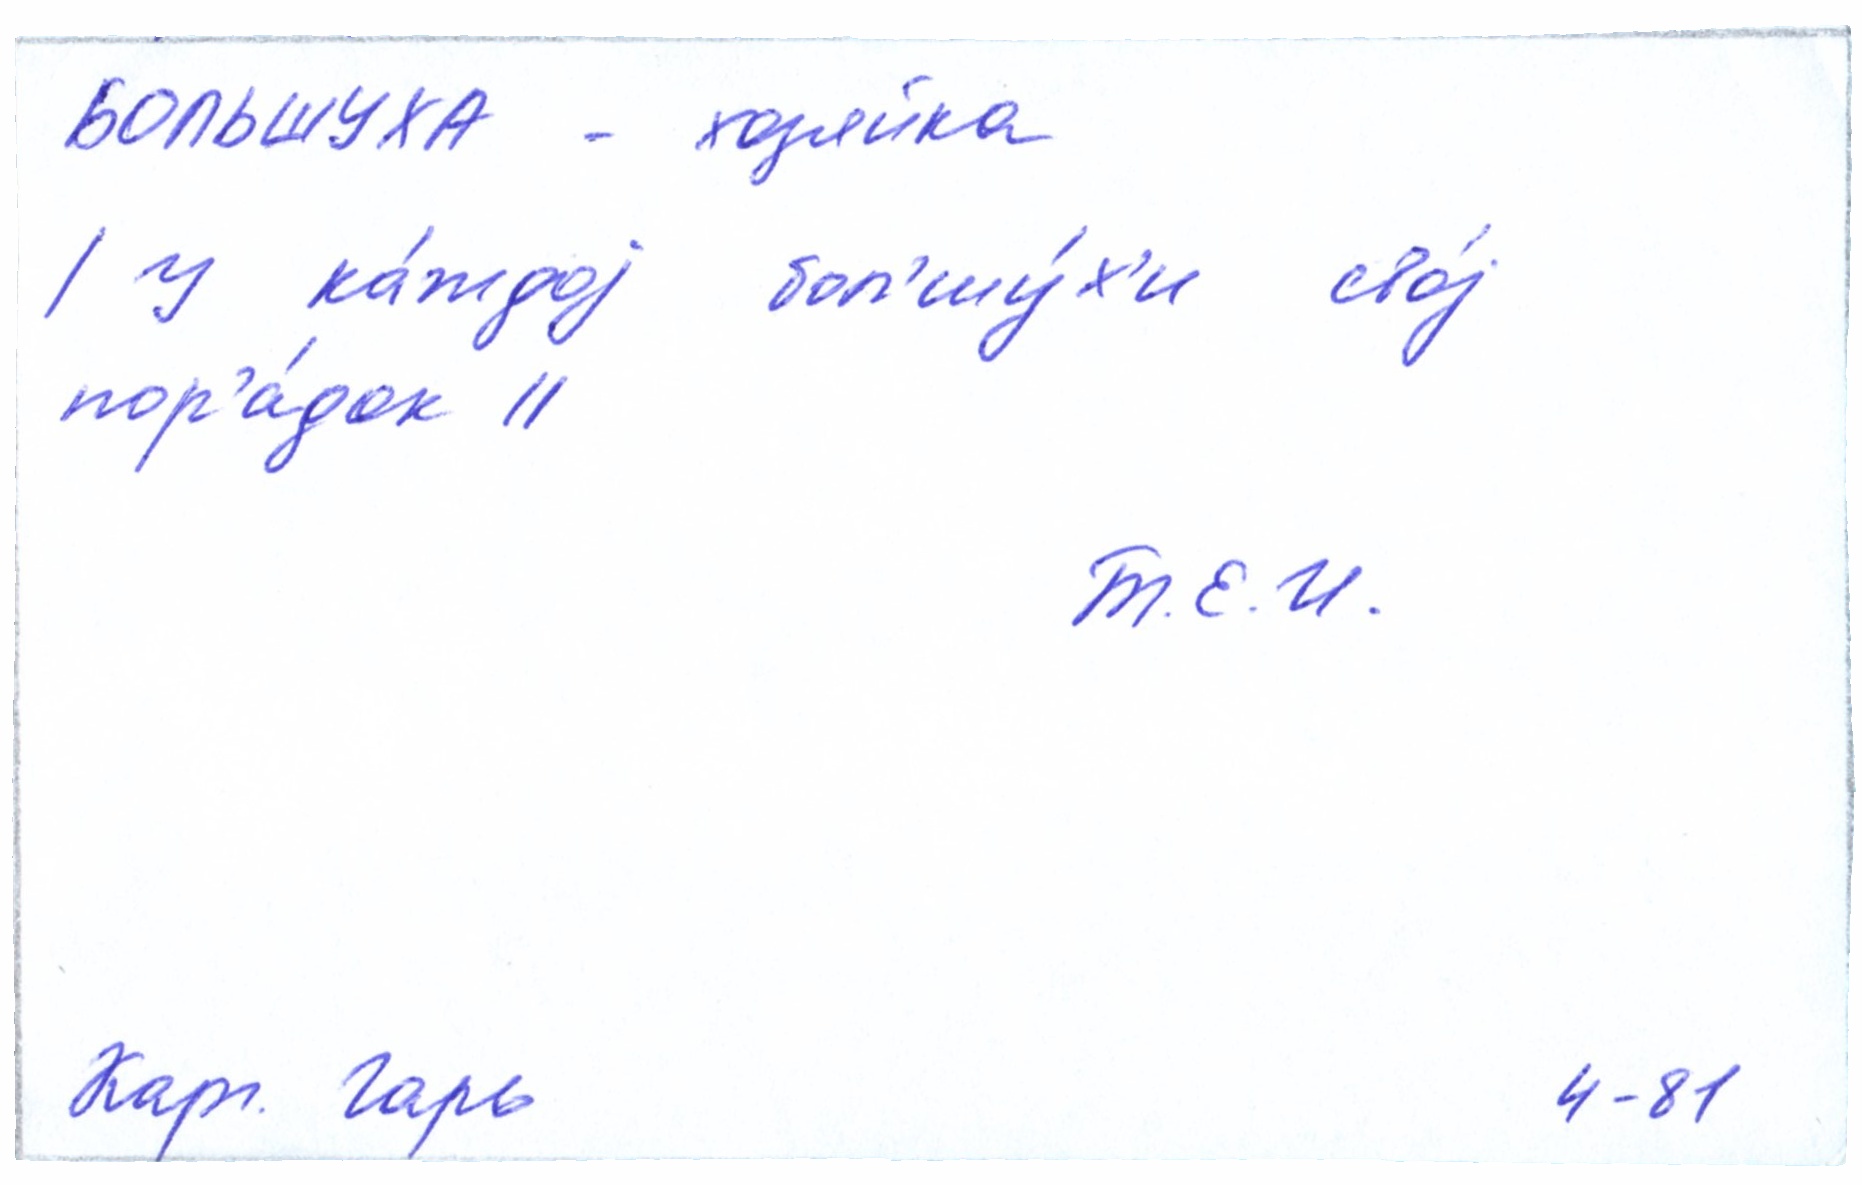 БОЛЬШУХА - хозяйка
/ У ка́ждој бол'шу́х'и сво́ј
пор'а́док //
Т.Е.И.
Карг. Гарь
4-81